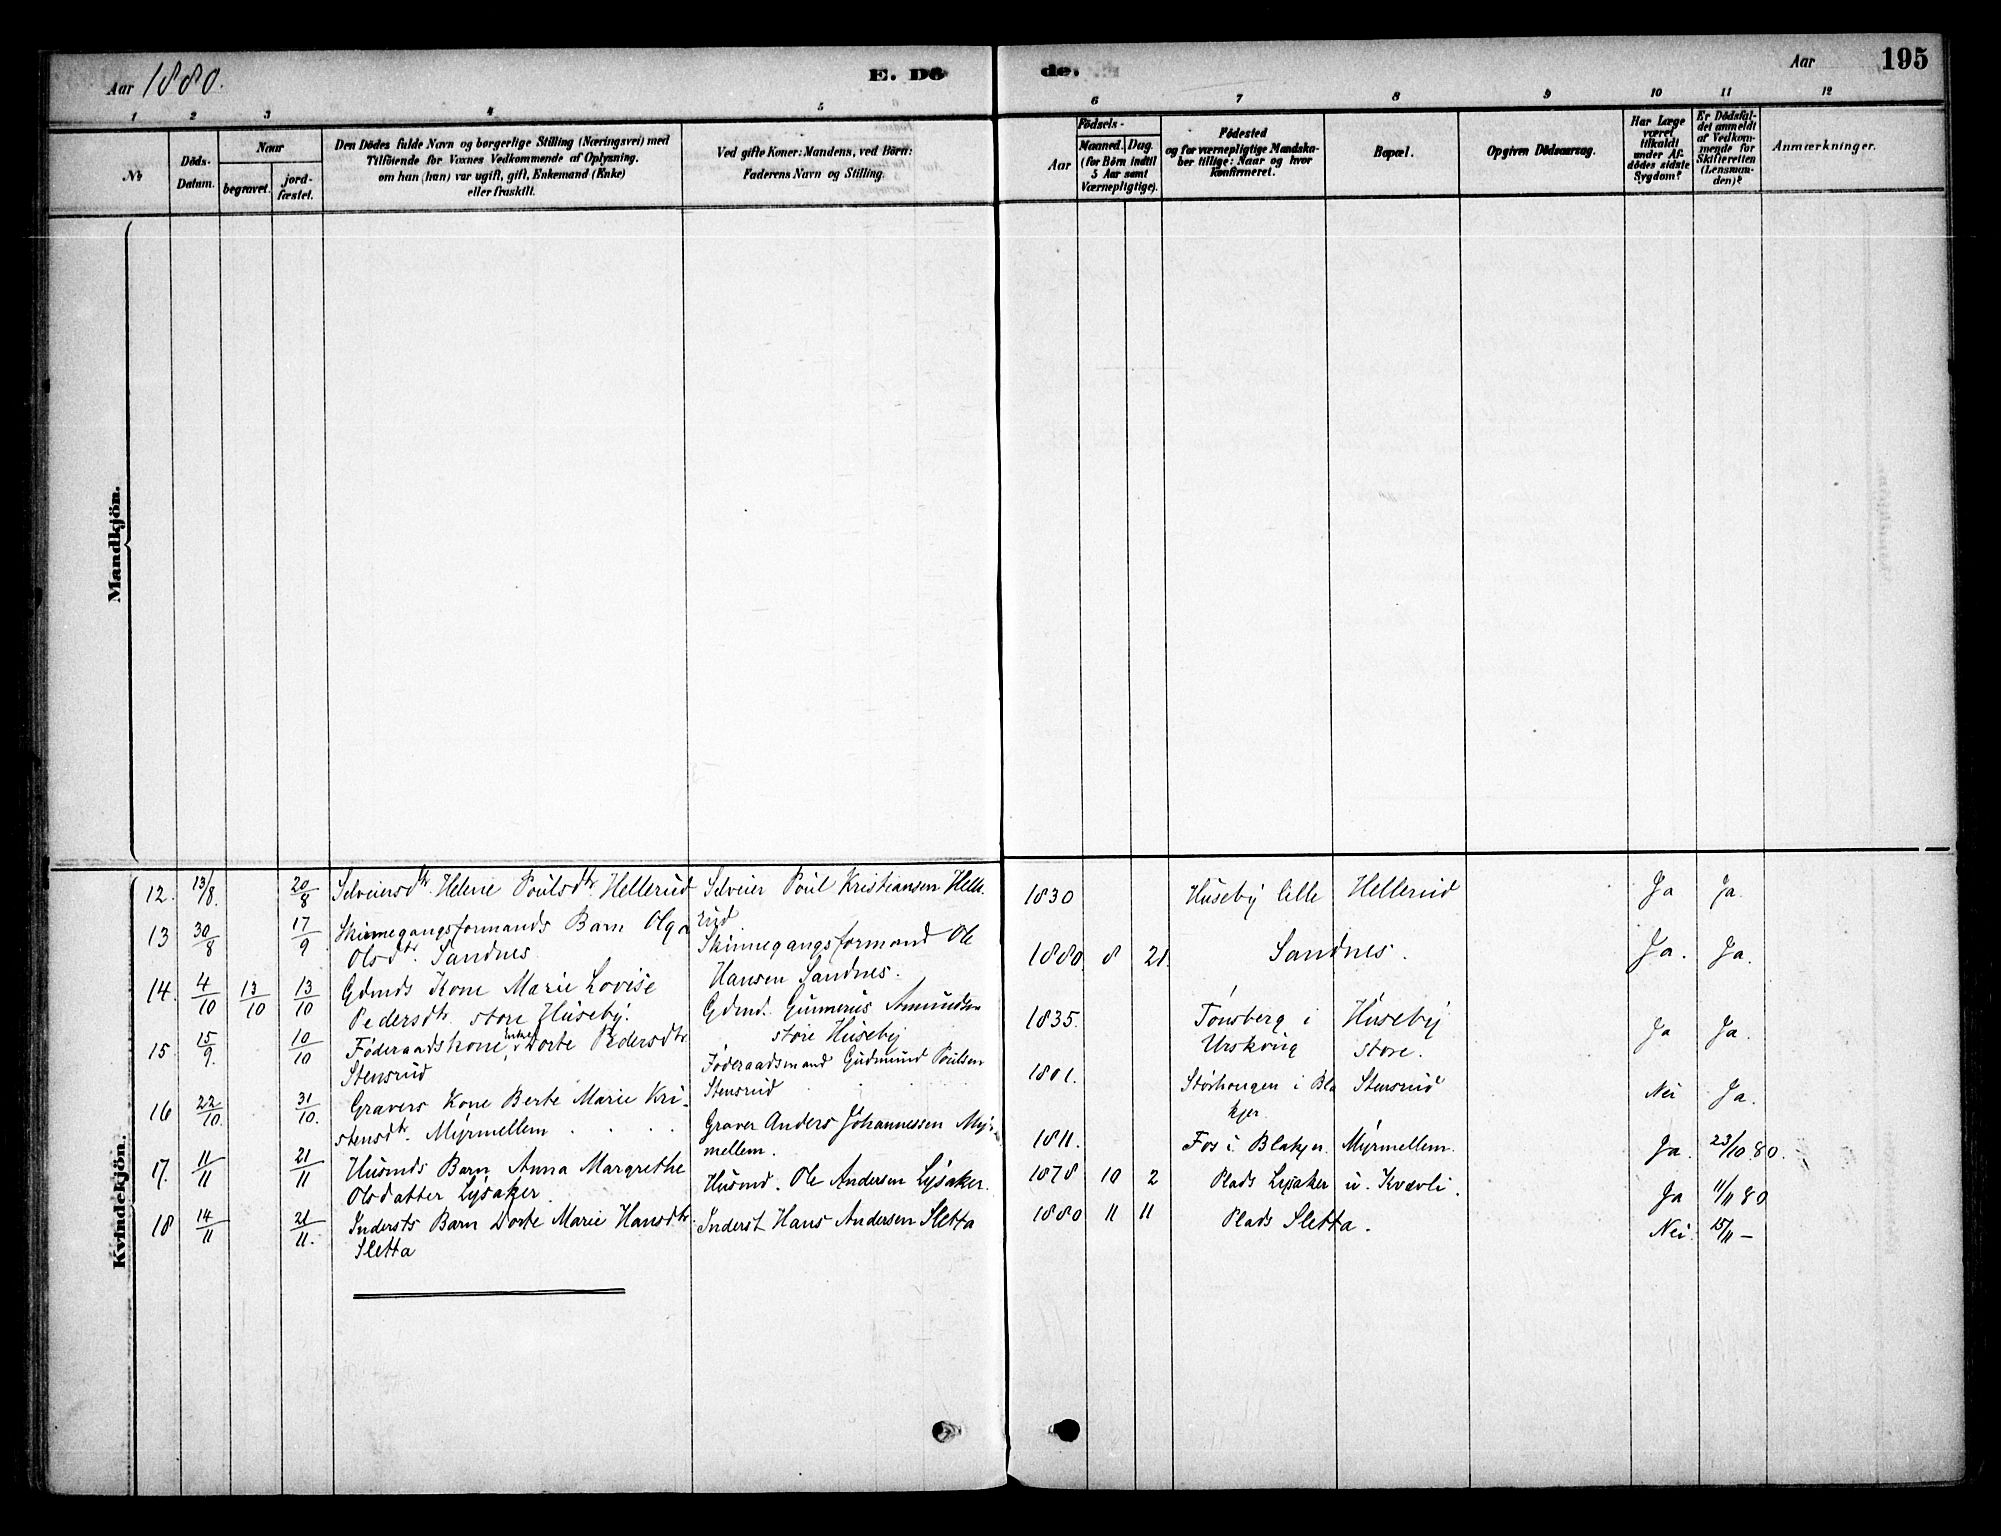 Aar 1880. E. Dö de. Aar 195
1 2 3 4 5 6 7 8 9 10 11 12
№
Döds-Datum.
Naar
begravet.
jord-fæstet.
Den Dödes fulde Navn og borgerlige Stilling (Næringsvei) med
Tilföiende for Voxnes Vedkommende af Oplysning,
om han (hun) var ugift, gift, Enkemand (Enke)
eller fraskilt.
Ved gifte Koner: Mandens, ved Börn:
Faderens Navn og Stilling.
Födsels-
Aar
Maaned. Dag.
(for Börn indtil
5 Aar samt
Værnepligtige).
Födested
og for værnepligtige Mandska-
ber tillige: Naar og hvor
konfirmeret.
Bopæl.
Opgiven Dödsaarsag.
Har Læge
været
tilkaldt
under Af-
dödes sidste
Sygdom?
Er Dödsfal-
det anmeldt
af Vedkom-
mende for
Skifteretten
(Lensman-
den)?
Anmærkninger.
Mandkjön.
Kvindekjön.
12. 13/8. 20/8 Selveiersdtr. Helene Poulsdtr Hellerud Selveier Poul Kristiansen Helle- 1830 Huseby lille Hellerud Ja Ja.
rud.
13 30/8 17/9 Skinnegangsformands Barn Olga Skinnegangsformand Ole 1880. 8 21. Sandnes. Ja. Ja.
Olsdtr. Sandnes Hansen Sandnes.
14. 4/10 13/10 13/10 Gdmds Kone Marie Lovise Gdmd. Gunnerus Amundsen 1835. Tonsberg i Huseby Ja Ja.
Pedersdtr. store Huseby. store Huseby Urskoug store.
15 15/9. 10/10 Føderaadskone, Enke Dorte Pedersdtr Føderaadsmand Gudmund Poulsen 1801. i Bla Stensrud Nei Ja.
Stensrud Stensrud kjer.
16 22/10. 31/10. Gravers Kone Berte Marie Kri- Graver Anders Johannessen Myr- 1811. Fos i Blakjer. Myrmellem. Ja. 23/10 80.
stensdtr. Myrmellem mellem.
17. 11/11 21/11 Husmds Barn Anna Margrethe Husmd. Ole Andersen Lysaker. 1878 10 2 Plads Lysaker u. Kvævli. Ja 11/11 80
Olsdatter Lysaker.
18 14/11 21/11. Indersts Barn Dorte Marie Hansdtr. Inderst Hans Andersen Sletta 1880 11 11 Plads Sletta. Nei. 15/11 —
Sletta